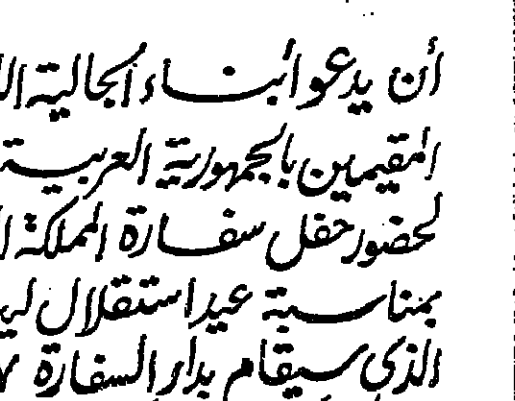 أن يدعو أبناء الجالية
المقيمين بالجمهورية العربية
لحضور حفل سفارة المملكة
بمناسبة عيد استقلال
الذي سيقام بدار السفارة ٧